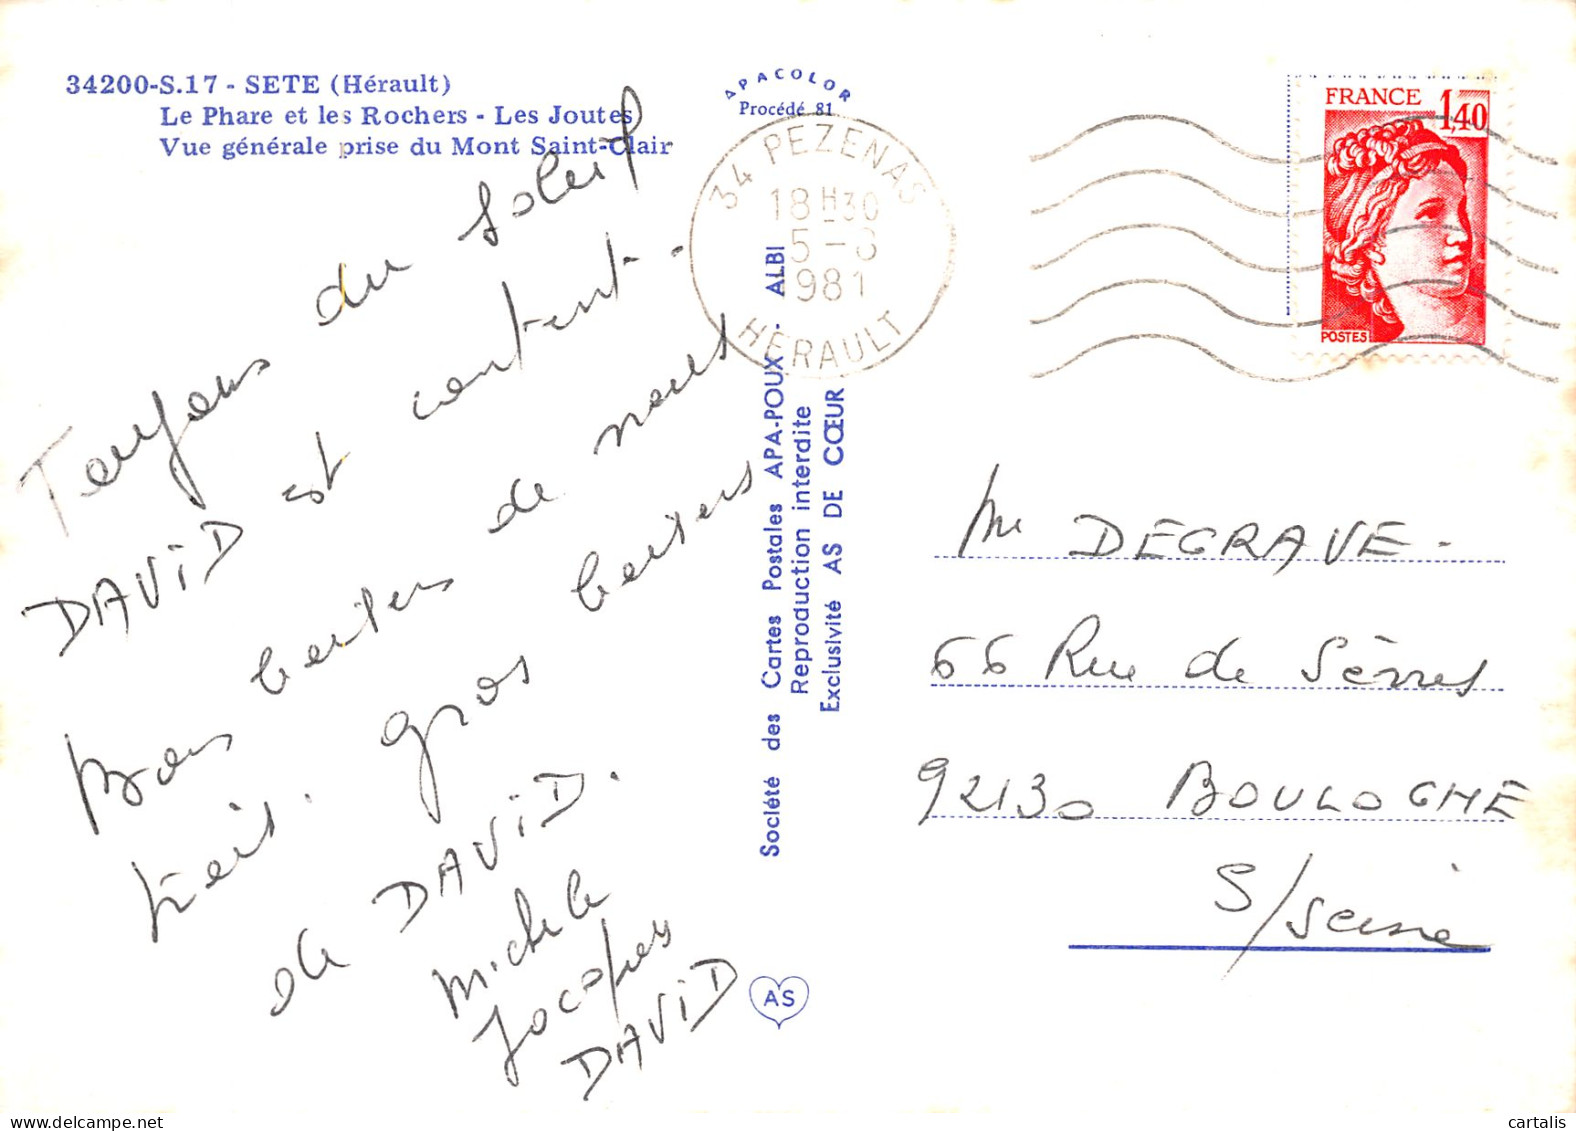 34200-S.17 - SETE (Hérault)
Le Phare et les Rochers - Les Joutes
Vue générale prise du Mont Saint-Clair
APACOLOR
Procédé 81
34 PEZENAS
18H30
5-8
1981
HERAULT
FRANCE 1,40
POSTES
Toujours du soleil
DAViD est content.
Bons baisers de nous
trois. gros baisers
de DAViD.
Michele
Jacques
DAViD
Société des Cartes Postales APA-POUX - ALBI
Reproduction interdite
Exclusivité AS DE CŒUR
AS
Mr DEGRAVE.
66 Rue de Sèvres
92130 BOULOGNE
S/Seine
cartalis